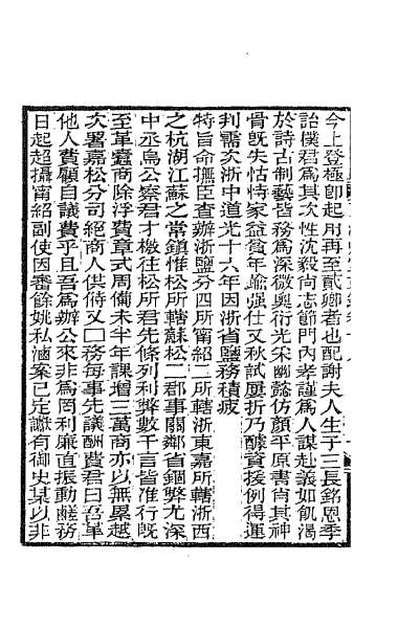 今上登極卽起用再至貳卿者也配謝夫人生子三長銘恩季
詒僕君爲其次性沈毅尚志節門內孝謹爲人謀赴義如飢渴
於詩古制藝皆務爲深微奧衍光宋幽懿仿顏平原書肖其神
骨旣失怙恃家益貧年踰强仕又秋試屢折乃醵資援例得運
判需次浙中道光十六年因浙省鹽務積疲
特旨命撫臣查辦浙鹽分四所甯紹二所轄浙東嘉所轄浙西
之杭湖江蘇之常鎭惟松所轄蘇松二郡事關鄰省錮弊尤深
中丞烏公察君才檄往松所君先條列利弊數千言皆准行旣
至革蠹商除浮費章式周備未半年課增三萬商亦以無累越
次署嘉松分司絕商人供偫又□務每事先議酬費君曰吾革
他人費顧自議費乎且吾爲辦公來非爲罔利廉直振動鹺務
日起超攝甯紹副使因審餘姚私滷案已定讞有御史某以非